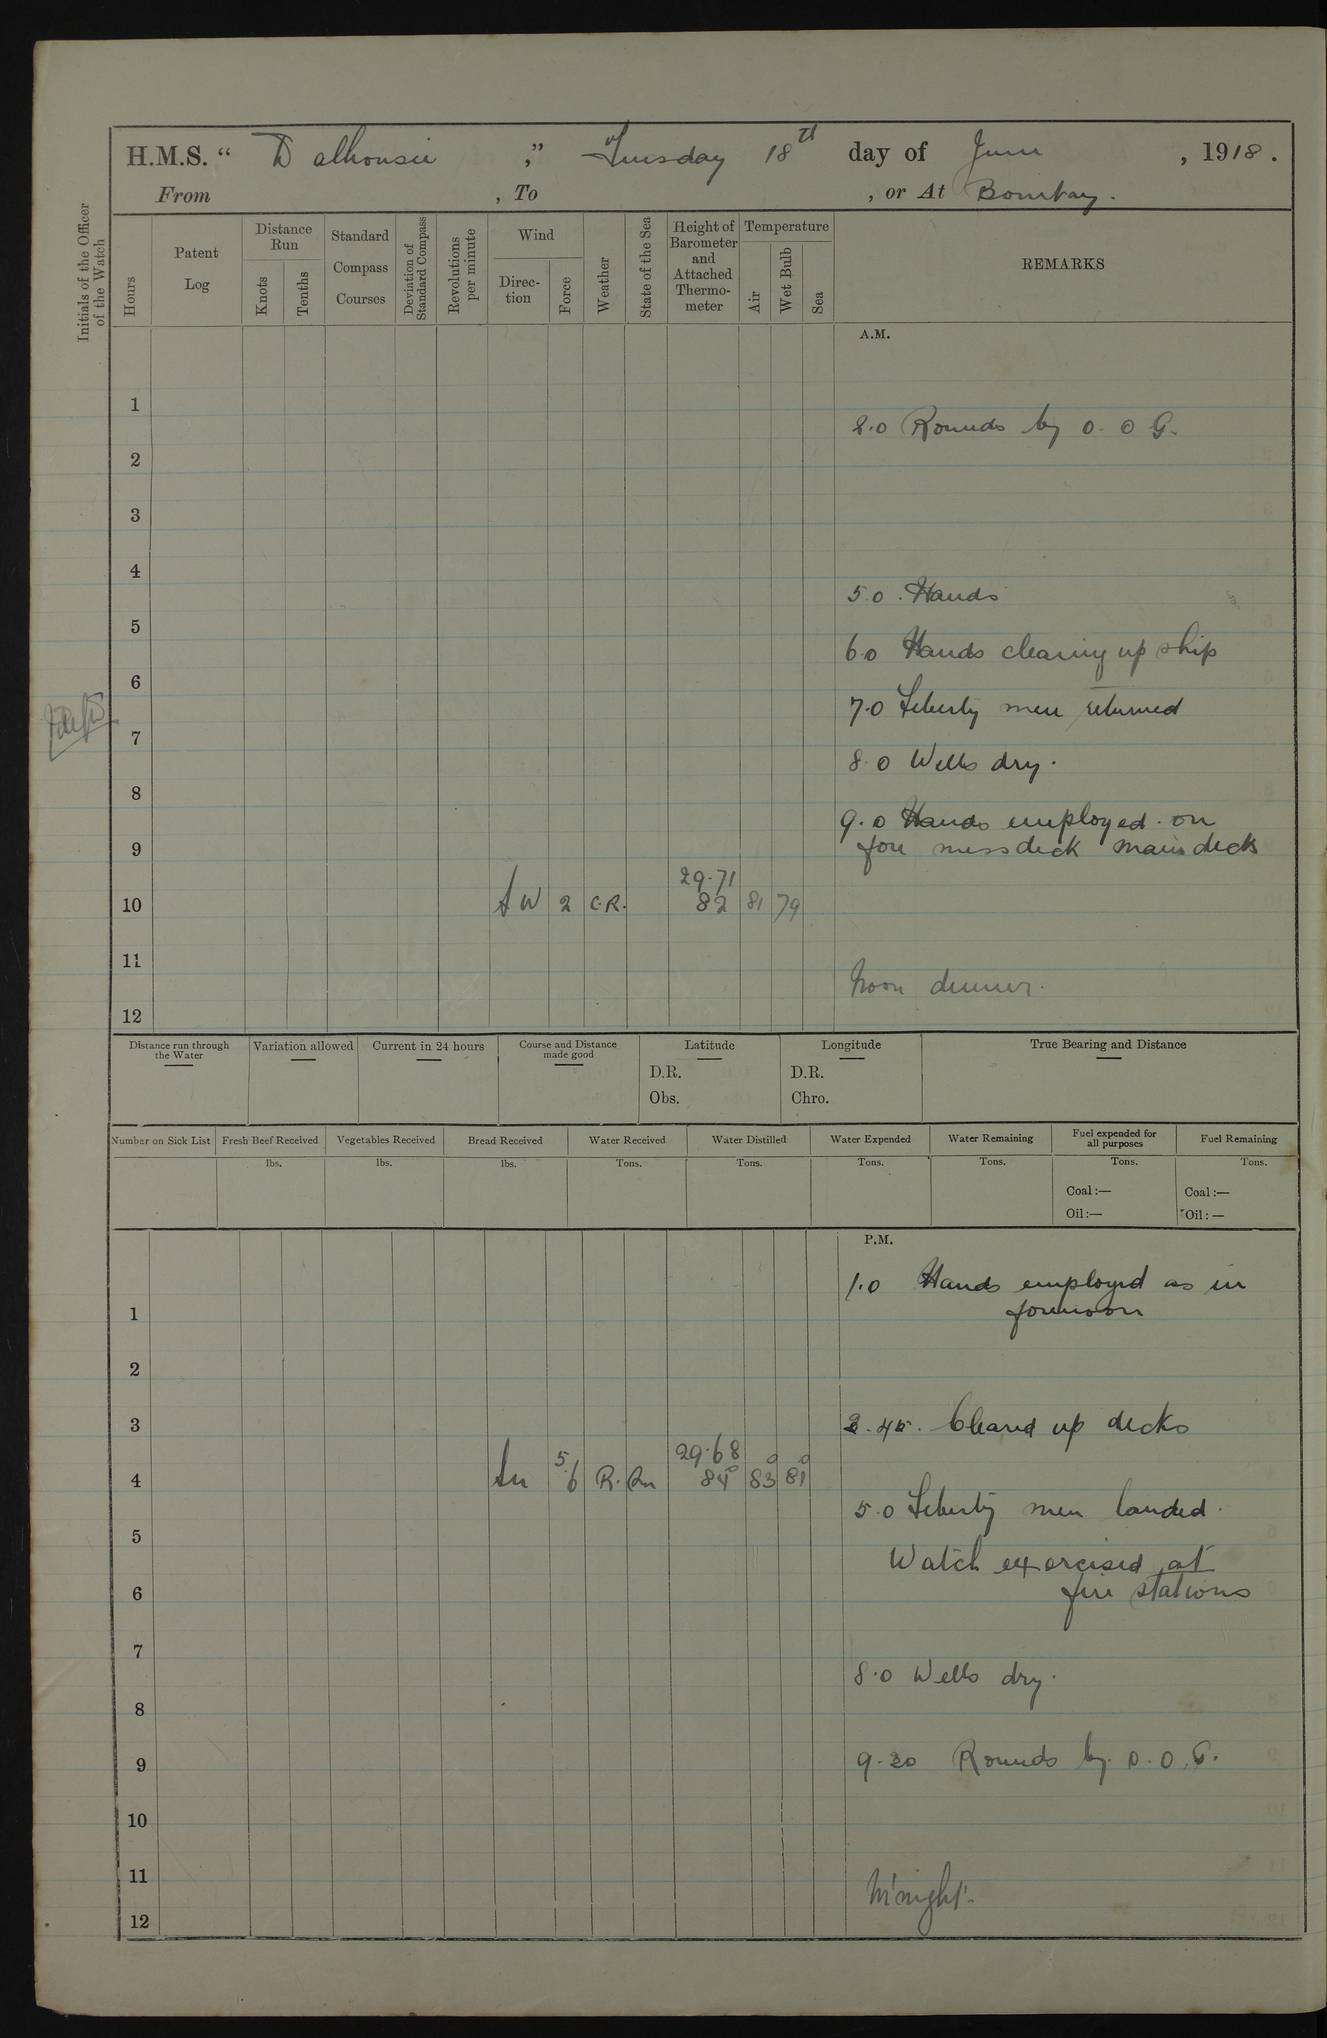 H.M.S. “ Dalhousie ,” Tuesday 18th day of June , 1918.
From , To , or At Bombay.
Initials of the Officer of the Watch
Hours
Patent Log
Distance Run
Knots
Tenths
Standard Compass Courses
Deviation of Standard Compass
Revolutions per minute
Wind
Direction
Force
Weather
State of the Sea
Height of Barometer and Attached Thermometer
Temperature
Air
Wet Bulb
Sea
REMARKS
A.M.
1
2.0 Rounds by O.O G.
2
3
4
5.0. Hands
5
6.0 Hands cleaning up ship
6
7.0 Liberty men returned
7
8.0 Wells dry.
8
9.0 Hands employed on
9 fore messdeck main deck
29.71
10 SW 2 C.R. 82 81 79
11
Noon dinner.
12
Distance run through the Water
Variation allowed
Current in 24 hours
Course and Distance made good
Latitude
D.R.
Obs.
Longitude
D.R.
Chro.
True Bearing and Distance
Number on Sick List
Fresh Beef Received
lbs.
Vegetables Received
lbs.
Bread Received
lbs.
Water Received
Tons.
Water Distilled
Tons.
Water Expended
Tons.
Water Remaining
Tons.
Fuel expended for all purposes
Tons.
Coal :—
Oil :—
Fuel Remaining
Tons.
Coal :—
Oil : —
P.M.
1.0 Hands employed as in
1 forenoon
2
3 3.45. Cleared up decks
5 29.68
4 6 84° 83° 81°
5.0 Liberty men landed.
5
Watch exercised at
6 fire stations
7
8.0 Wells dry.
8
9 9.30 Rounds by O.O.G.
10
11
M'night.
12